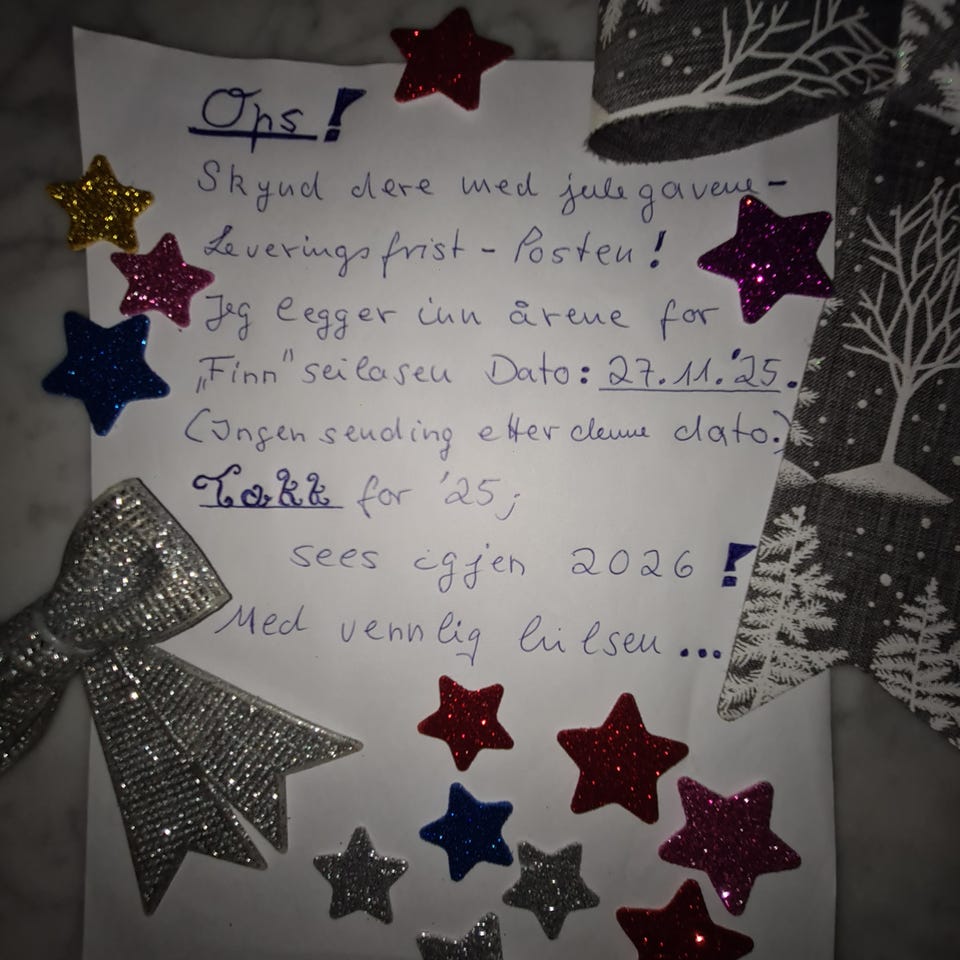 Ops!
Skynd dere med julegavene-
Leveringsfrist - Posten!
Jeg legger inn årene for
„Finn" seilasen Dato: 27.11.'25.
(Ingen sending etter denne dato.)
Takk for '25;
sees igjen 2026!
Med vennlig hilsen...